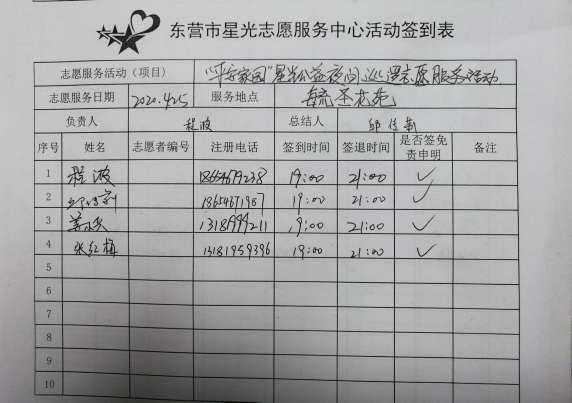 东营市星光志愿服务中心活动签到表
志愿服务活动（项目） "平安家园"星光公益夜间巡逻志愿服务活动
志愿服务日期 2020.4.25 服务地点 圣花苑
负责人 程波 总结人 邱传
序号 姓名 志愿者编号 注册电话 签到时间 签退时间 是否签免责申明 备注
1 程波 18654679238 19:00 21:00 ✓
2 18654671987 19:00 21:00 ✓
3 姜 13181999211 19:00 21:00 ✓
4 张红梅 13181959396 19:00 21:00 ✓
5
6
7
8
9
10